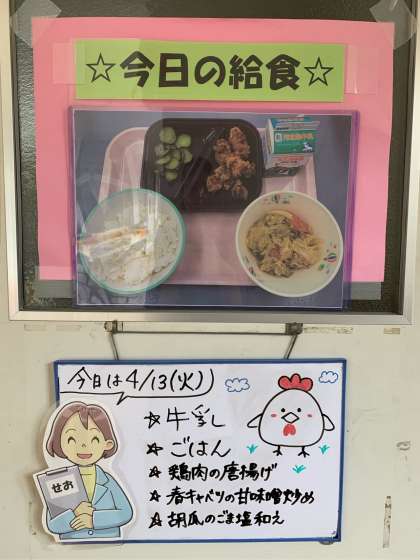 ☆今日の給食☆
今日は4/13(火)
☆牛乳
★ごはん
★鶏肉の唐揚げ
★春キャベツの甘味噌炒め
★胡瓜のごま塩和え
せお